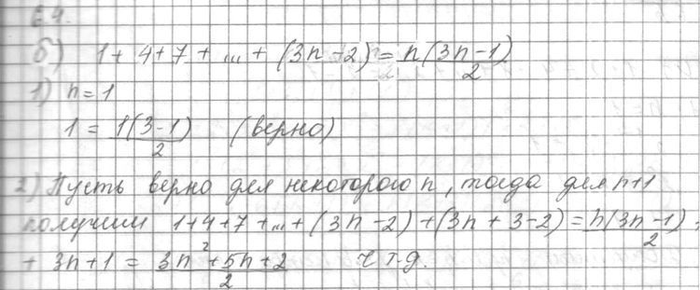 6.4.
б) 1+4+7+...+(3n-2)=n(3n-1)/2
1) n=1
1=1(3-1)/2 (верно)
2) Пусть верно для некоторого n, тогда для n+1
получим 1+4+7+...+(3n-2)+(3n+3-2)=n(3n-1)/2+
+3n+1=(3n²+5n+2)/2 Ч.т.д.